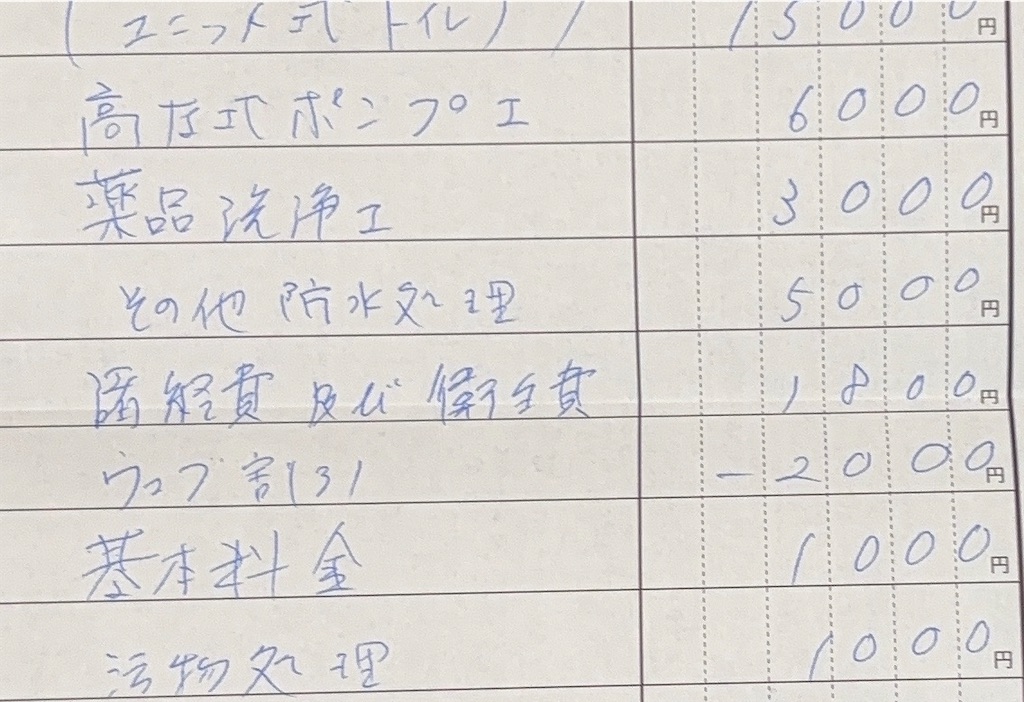 (ユニット式トイレ) 15000円
高圧式ポンプ工 6000円
薬品洗浄工 3000円
その他 防水処理 5000円
諸経費及び衛生費 1800円
ウェブ割引 -2000円
基本料金 1000円
汚物処理 1000円